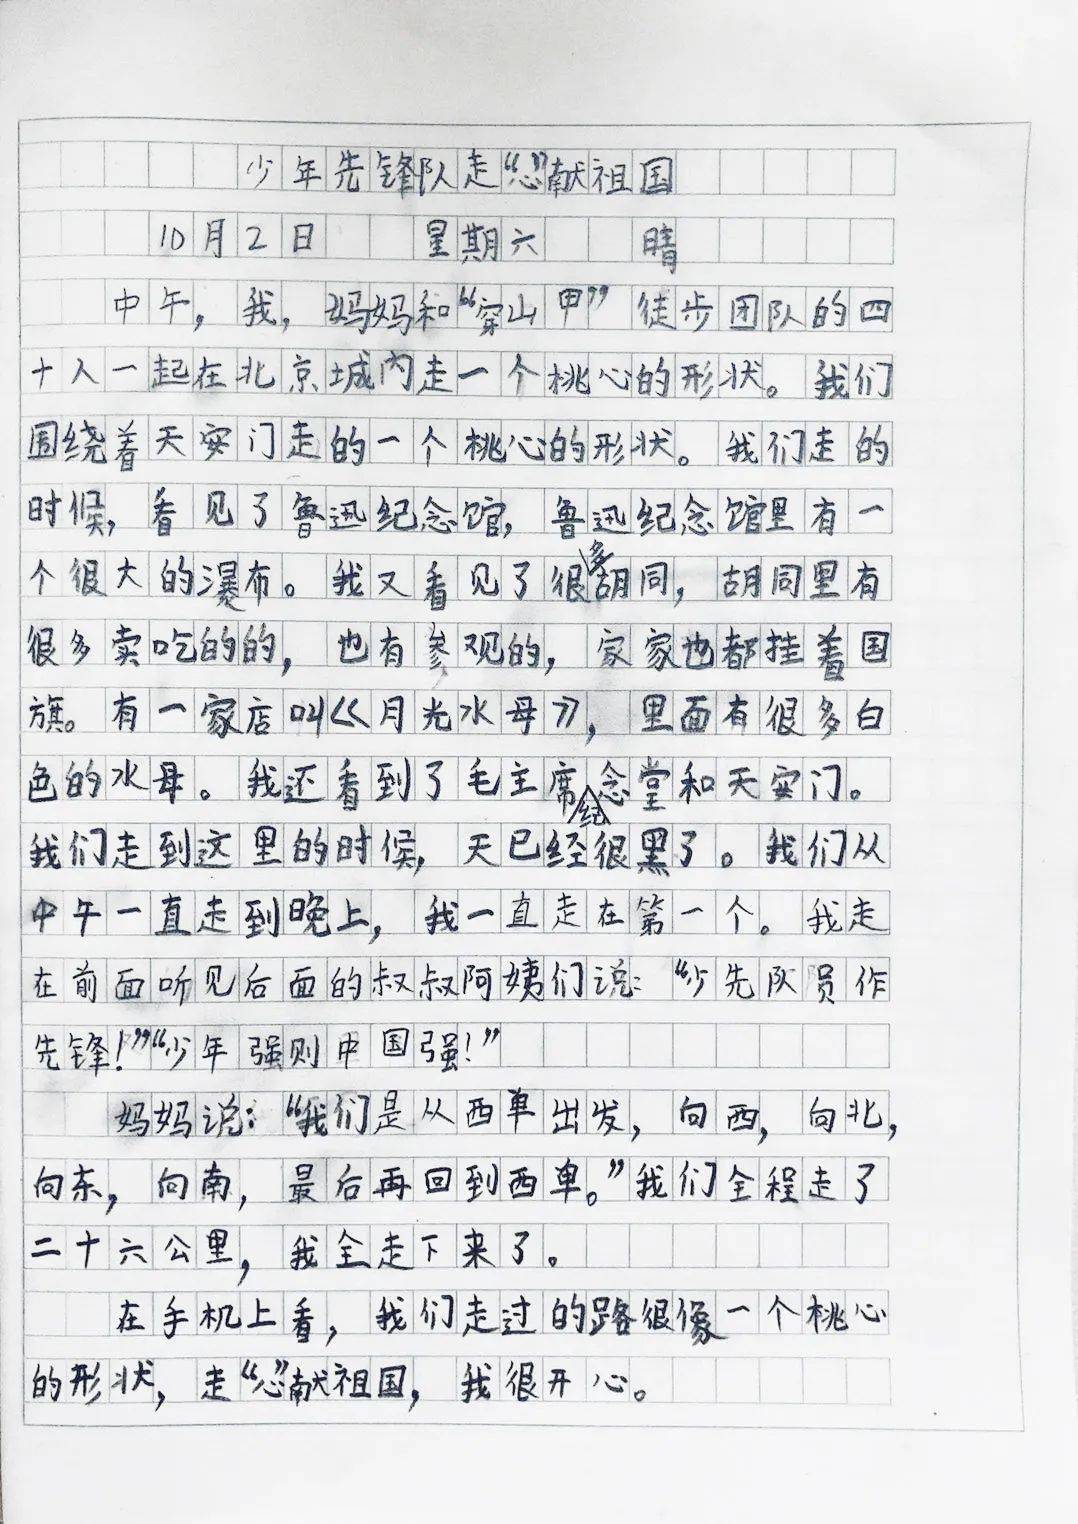 少年先锋队走“心”献祖国
10月2日 星期六 晴
中午，我，妈妈和“穿山甲”徒步团队的四
十人一起在北京城内走一个桃心的形状。我们
围绕着天安门走的一个桃心的形状。我们走的
时候，看见了鲁迅纪念馆，鲁迅纪念馆里有一
个很大的瀑布。我又看见了很多胡同，胡同里有
很多卖吃的的，也有参观的，家家也都挂着国
旗。有一家店叫《月光水母》，里面有很多白
色的水母。我还看到了毛主席纪念堂和天安门。
我们走到这里的时候，天已经很黑了。我们从
中午一直走到晚上，我一直走在第一个。我走
在前面听见后面的叔叔阿姨们说：“少先队员作
先锋！”“少年强则中国强！”
妈妈说：“我们是从西单出发，向西，向北，
向东，向南，最后再回到西单。”我们全程走了
二十六公里，我全走下来了。
在手机上看，我们走过的路很像一个桃心
的形状，走“心”献祖国，我很开心。